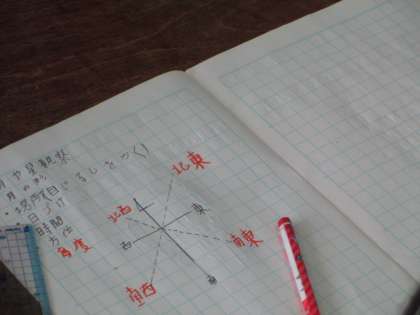 月や星観察
月の形
・場所(目じるしをつく)
日づけ
時間
方位
角度
北東
北西
東
西
南東
南西
南